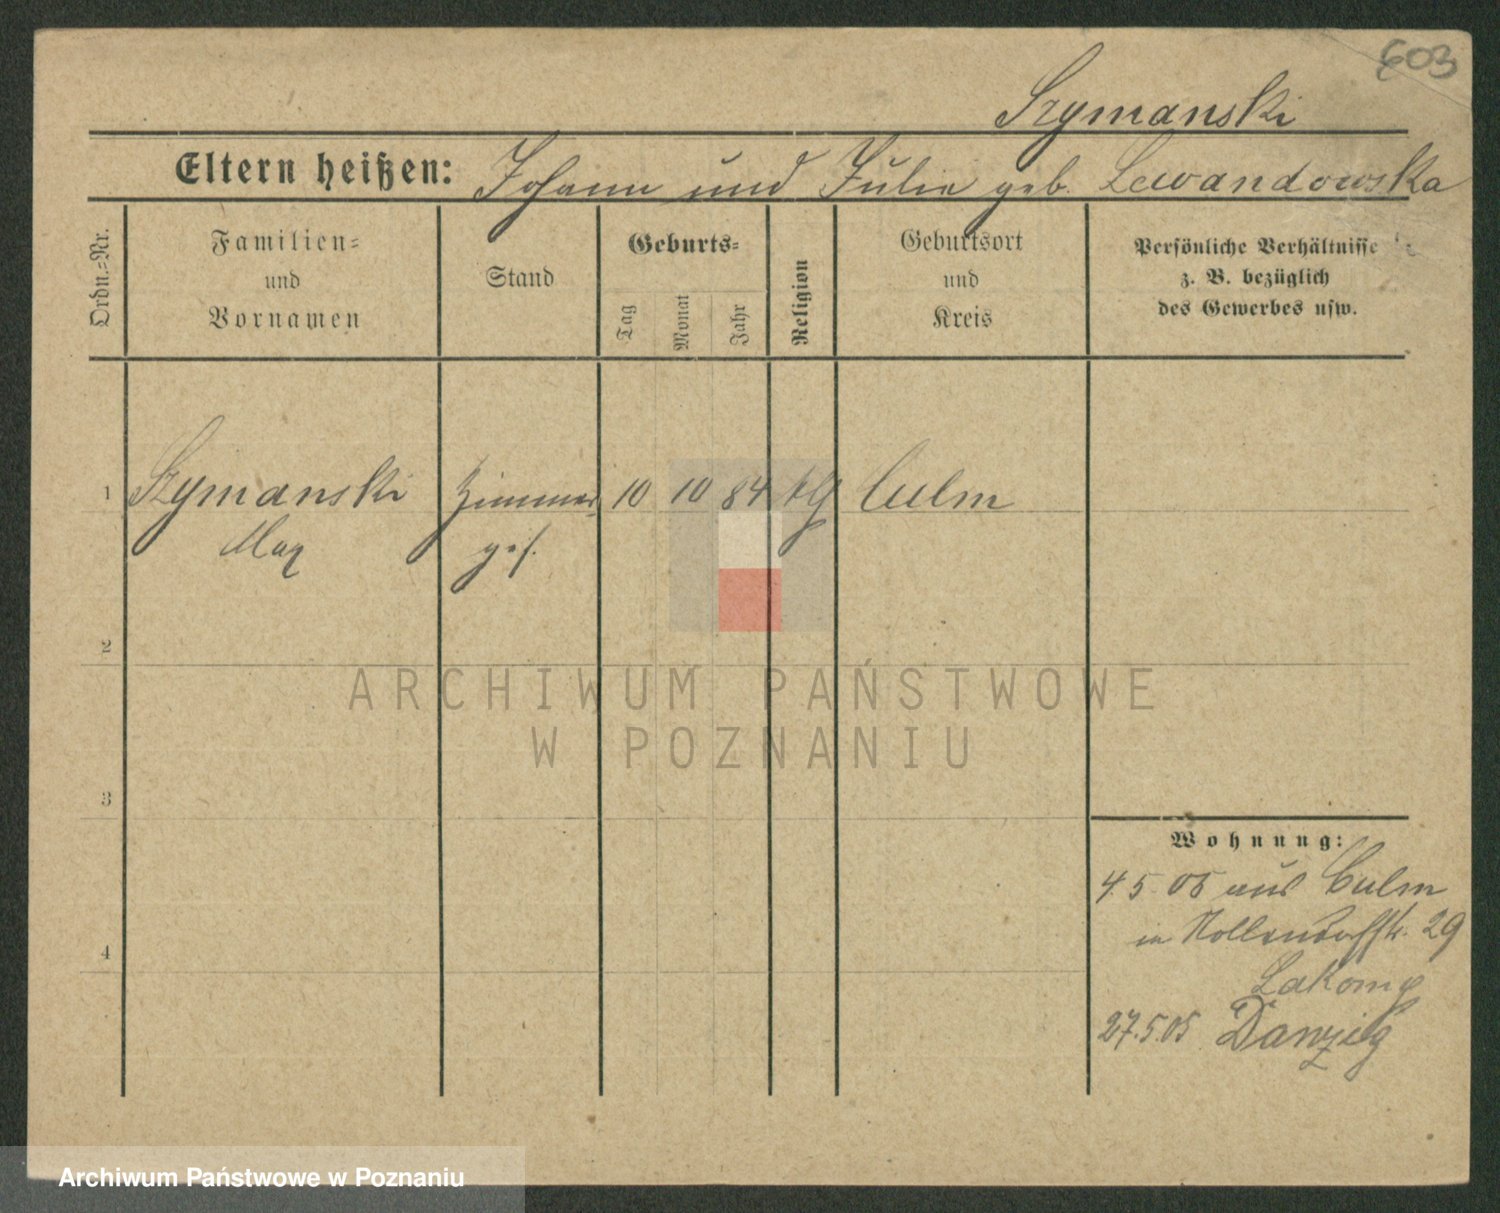 603
Szymanski
Eltern heißen: Johann und Julia geb. Lewandowska
Ordn.=Nr.
Familien=
und
Vornamen
Stand
Geburts=
Tag
Monat
Jahr
Religion
Geburtsort
und
Kreis
Persönliche Verhältnisse
z. B. bezüglich
des Gewerbes usw.
1 Szymanski Zimmer= 10 10 84 Culm
Max ges.
2
3
4
Wohnung:
4.5.05 aus Culm
in Nollendorfstr. 29
Lakomy
27.5.05 Danzig
ARCHIWUM PAŃSTWOWE
W POZNANIU
Archiwum Państwowe w Poznaniu